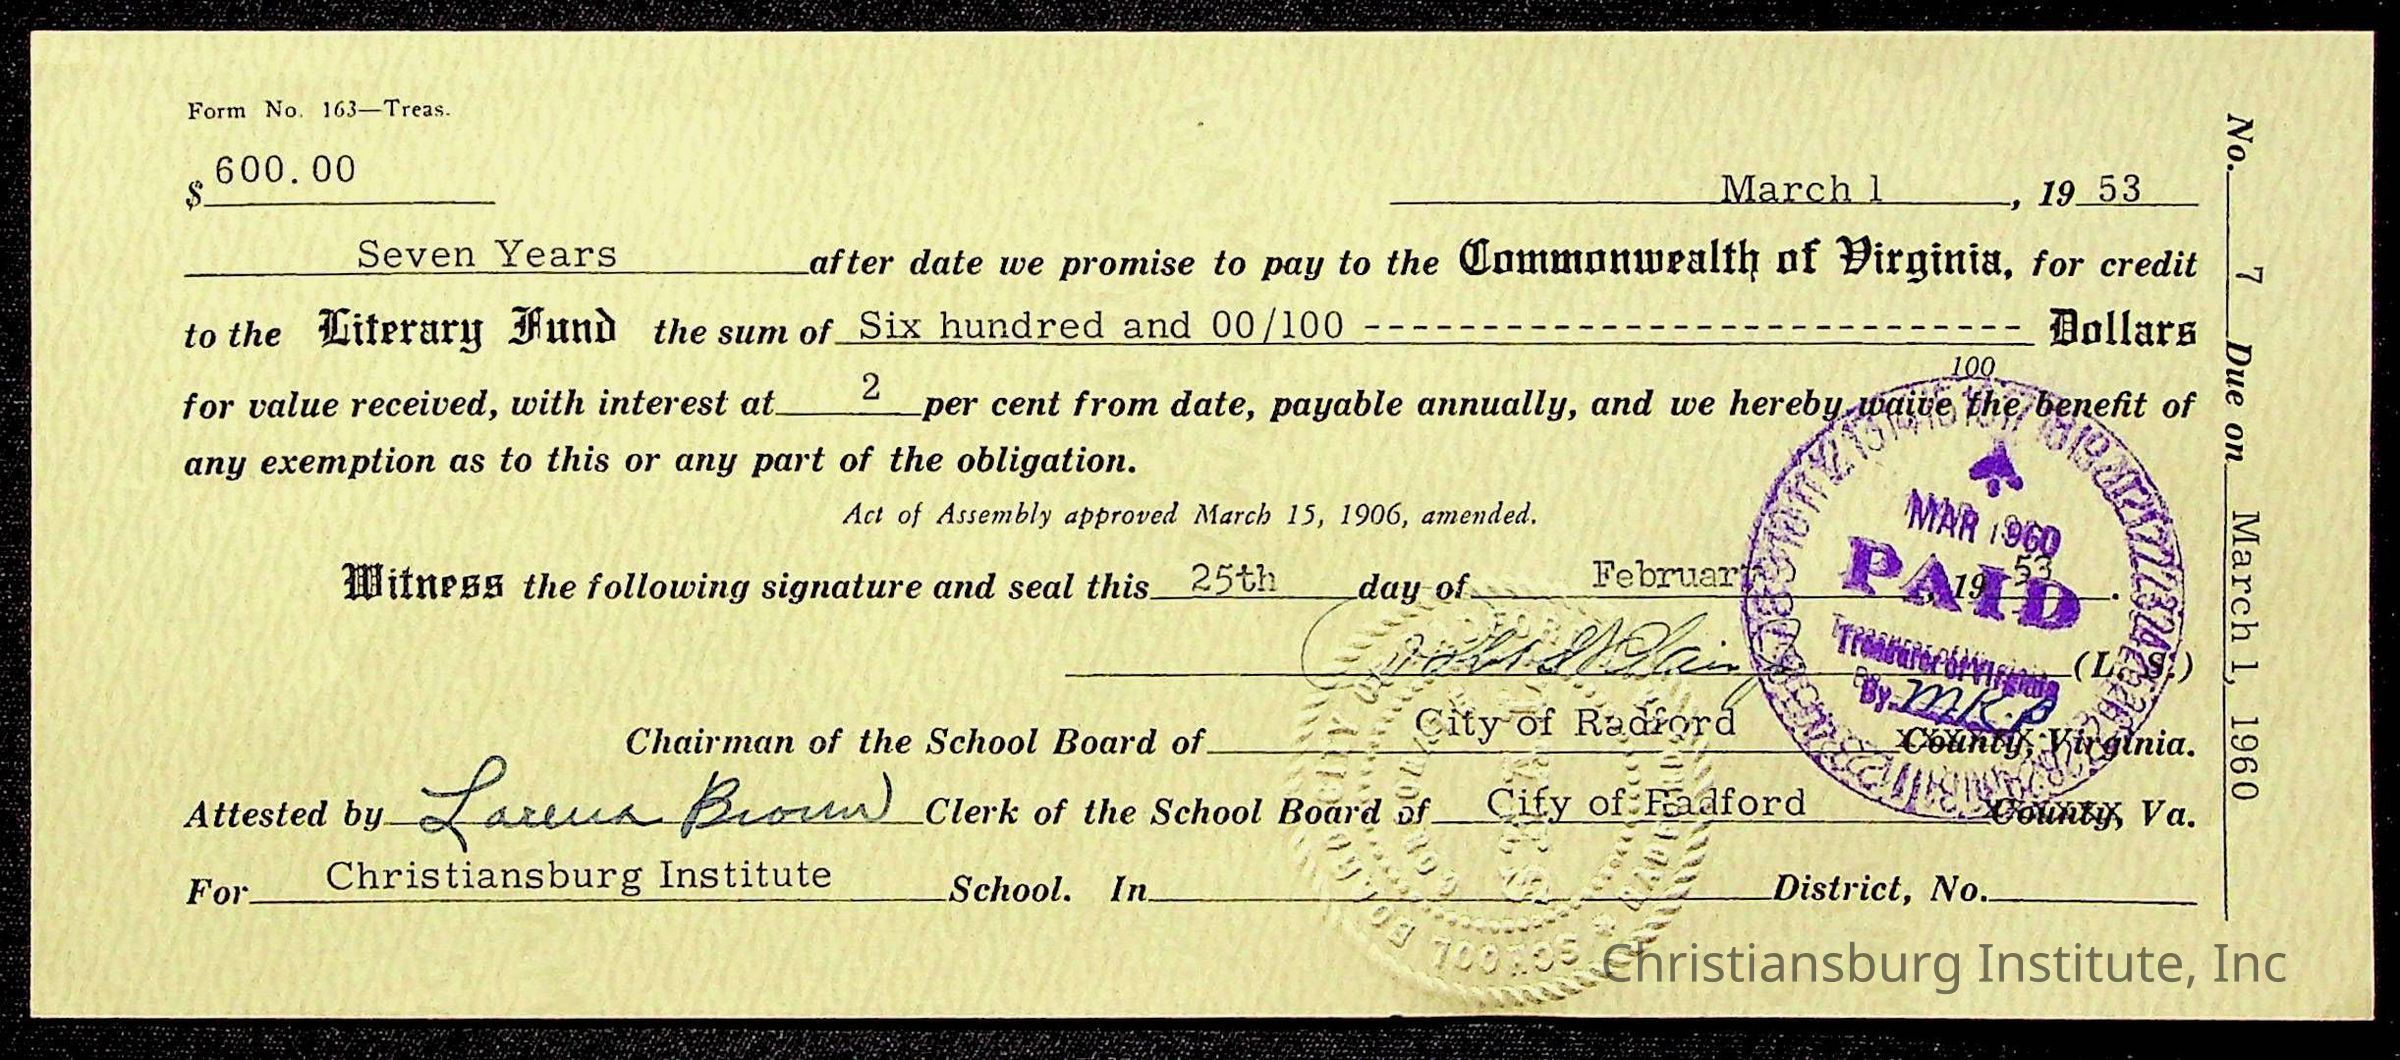 Form No. 163—Treas.
$ 600.00
March 1, 19 53
Seven Years after date we promise to pay to the Commonwealth of Virginia, for credit
to the Literary Fund the sum of Six hundred and 00/100 ---------------------------- Dollars
100
for value received, with interest at 2 per cent from date, payable annually, and we hereby waive the benefit of
any exemption as to this or any part of the obligation.
Act of Assembly approved March 15, 1906, amended.
Witness the following signature and seal this 25th day of February, 19 53.
(L. S.)
Chairman of the School Board of City of Radford County, Virginia.
Attested by Lorena Brown Clerk of the School Board of City of Radford County, Va.
For Christiansburg Institute School. In District, No.
No. 7 Due on March 1, 1960
MAR 1960
PAID
Treasurer of Virginia
By M.K.P
SCHOOL BOARD CITY OF RADFORD
Christiansburg Institute, Inc